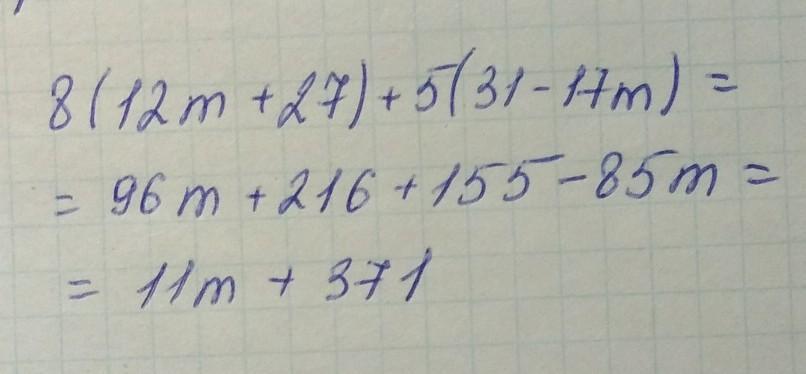 8(12m + 27) + 5(31 - 17m) =
= 96m + 216 + 155 - 85m =
= 11m + 371